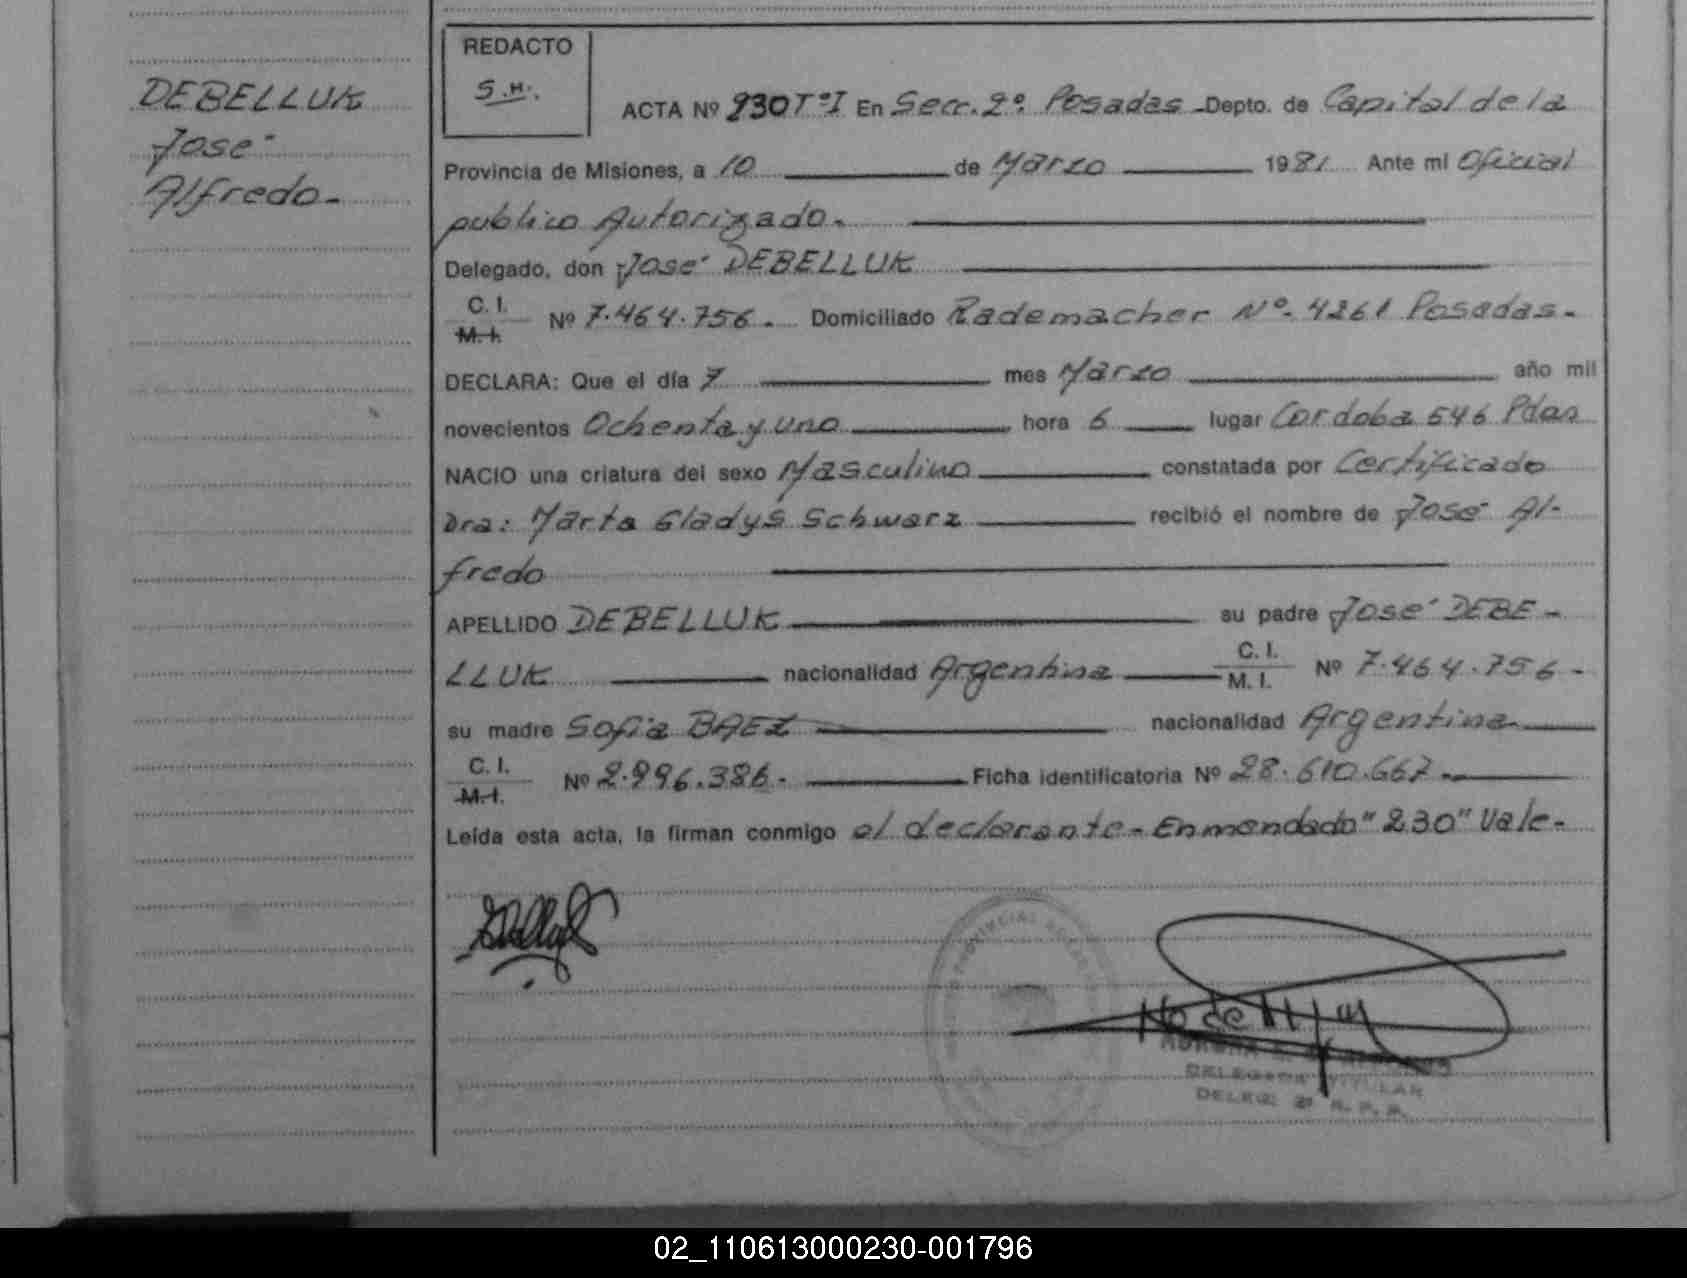 DEBELLUK
José
Alfredo.-
REDACTO
S.H.
ACTA Nº 230 TºI En Secc. 2º. Posadas - Depto. de Capital de la
Provincia de Misiones, a 10 de Marzo 1981 Ante mi Oficial
publico Autorizado.-
Delegado, don José DEBELLUK
C. I.
M. I.
Nº 7.464.756.- Domiciliado Rademacher Nº.- 4261 Posadas.-
DECLARA: Que el día 7 mes Marzo año mil
novecientos Ochenta y uno hora 6 lugar Cordoba 546 Pdas
NACIO una criatura del sexo Masculino constatada por Certificado
Dra: Marta Gladys Schwarz recibió el nombre de José Al-
fredo
APELLIDO DEBELLUK su padre José DEBE-
LLUK nacionalidad Argentina C. I.
M. I. Nº 7.464.756.-
su madre Sofia BAEZ nacionalidad Argentina
C. I.
M. I.
Nº 2.996.386.- Ficha identificatoria Nº 28.610.667.-
Leída esta acta, la firman conmigo el declarante.- Enmendado "230" Vale.-
DELEGADA TITULAR
02_110613000230-001796